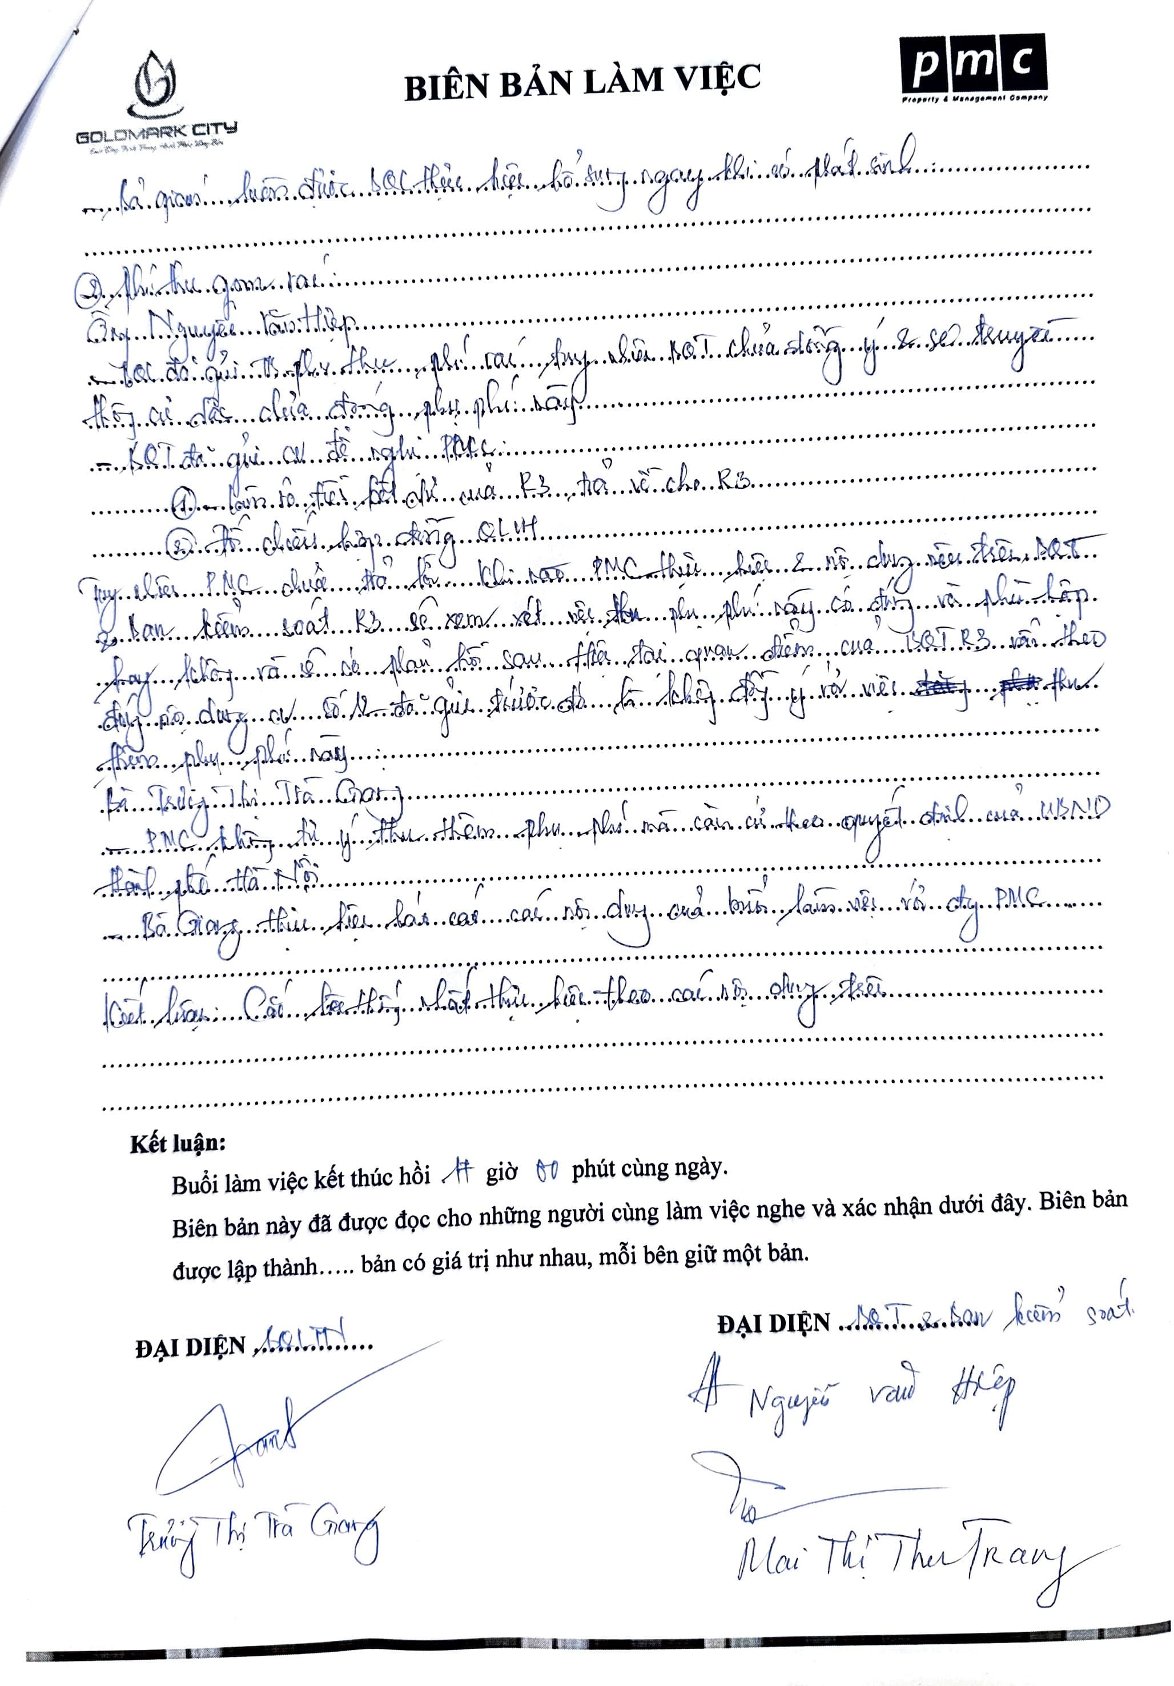 GOLDMARK CITY
BIÊN BẢN LÀM VIỆC
pmc
Property & Management Company
- Bà Giang: luôn được BQL thực hiện bổ sung ngay khi có phát sinh.
② Phí thu gom rác:
Ông Nguyễn Văn Hiệp
- BQL đã gửi TB phụ thu phí rác, tuy nhiên BQT chưa đồng ý & sẽ truyền
thông cư dân chưa đóng phụ phí này
- BQT đã gửi CV đề nghị PMC:
① Làm rõ tiền kết dư của R3, trả về cho R3
② Đối chiếu hợp đồng QLVH
Tuy nhiên PMC chưa trả lời. Khi nào PMC thực hiện 2 nội dung nêu trên BQT
& Ban kiểm soát R3 sẽ xem xét việc thu phụ phí này có đúng và phù hợp
hay không và sẽ có phản hồi sau. Hiện tại quan điểm của BQT R3 vẫn theo
đúng nội dung CV số 12 đã gửi trước đó là không đồng ý với việc thu
thêm phụ phí này.
Bà Trương Thị Trà Giang
- PMC không tự ý thu thêm phụ phí mà căn cứ theo quyết định của UBND
thành phố Hà Nội
- Bà Giang thực hiện báo cáo các nội dung của buổi làm việc với cty PMC
Kết luận: Các bên thống nhất thực hiện theo các nội dung trên
Kết luận:
Buổi làm việc kết thúc hồi 11 giờ 00 phút cùng ngày.
Biên bản này đã được đọc cho những người cùng làm việc nghe và xác nhận dưới đây. Biên bản
được lập thành..... bản có giá trị như nhau, mỗi bên giữ một bản.
ĐẠI DIỆN BQLTN
ĐẠI DIỆN BQT & Ban kiểm soát
Nguyễn Văn Hiệp
Trương Thị Trà Giang
Mai Thị Thu Trang